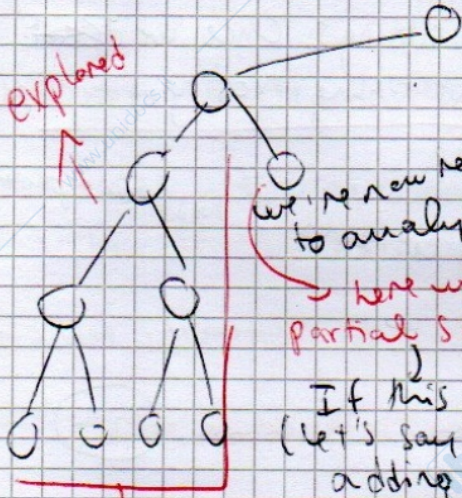 explored
we're now re
to analy
here w
partial s
If this
(let's say
adding